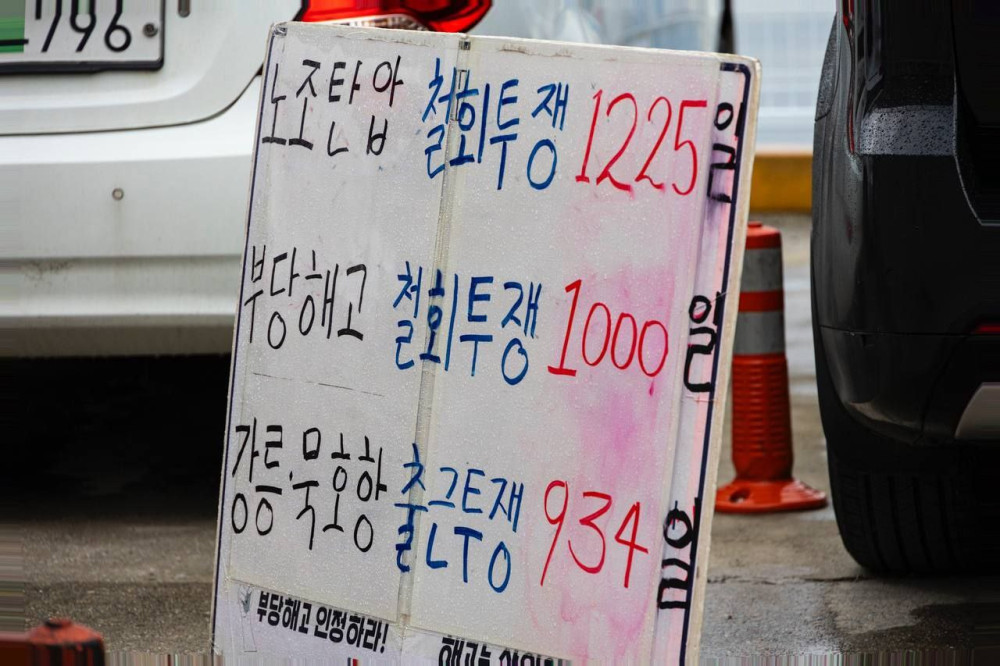 796
노조탄압 철회투쟁 1225일
부당해고 철회투쟁 1000일
강릉.묵호항 출근투쟁 934일
부당해고 인정하라!